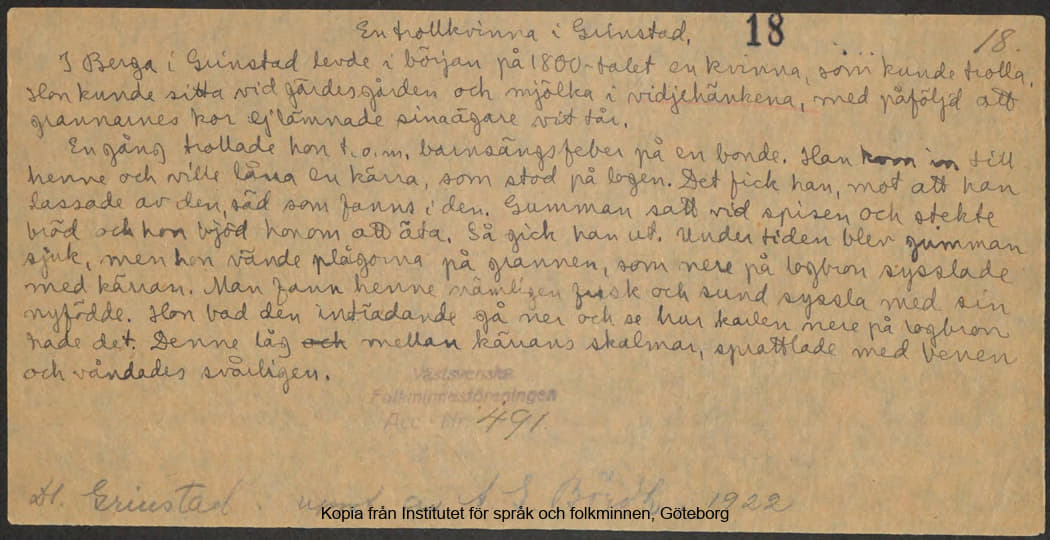 En trollkvinna i Grinstad.
18
18.
I Berga i Grinstad levde i början på 1800-talet en kvinna, som kunde trolla.
Hon kunde sitta vid gärdesgården och mjölka i vidjehänkena, med påföljd att
grannarnes kor ej lämnade sina ägare vit tår.
En gång trollade hon t.o.m. barnsängsfeber på en bonde. Han kom in till
henne och ville låna en kärra, som stod på logen. Det fick han, mot att han
lassade av den säd som fanns i den. Gumman satt vid spisen och stekte
bröd och hon bjöd honom att äta. Så gick han ut. Under tiden blev gumman
sjuk, men hon vände plågorna på grannen, som nere på logbron sysslade
med kärran. Man fann henne nämligen frisk och sund syssla med sin
nyfödde. Hon bad den inträdande gå ner och se hur karlen nere på logbron
hade det. Denne låg och mellan kärrans skalmar, sprattlade med benen
och våndades svårligen.
Västsvenska
Folkminnesföreningen
Acc. Nr. 491.
Dl. Grinstad. av 1922
Kopia från Institutet för språk och folkminnen, Göteborg